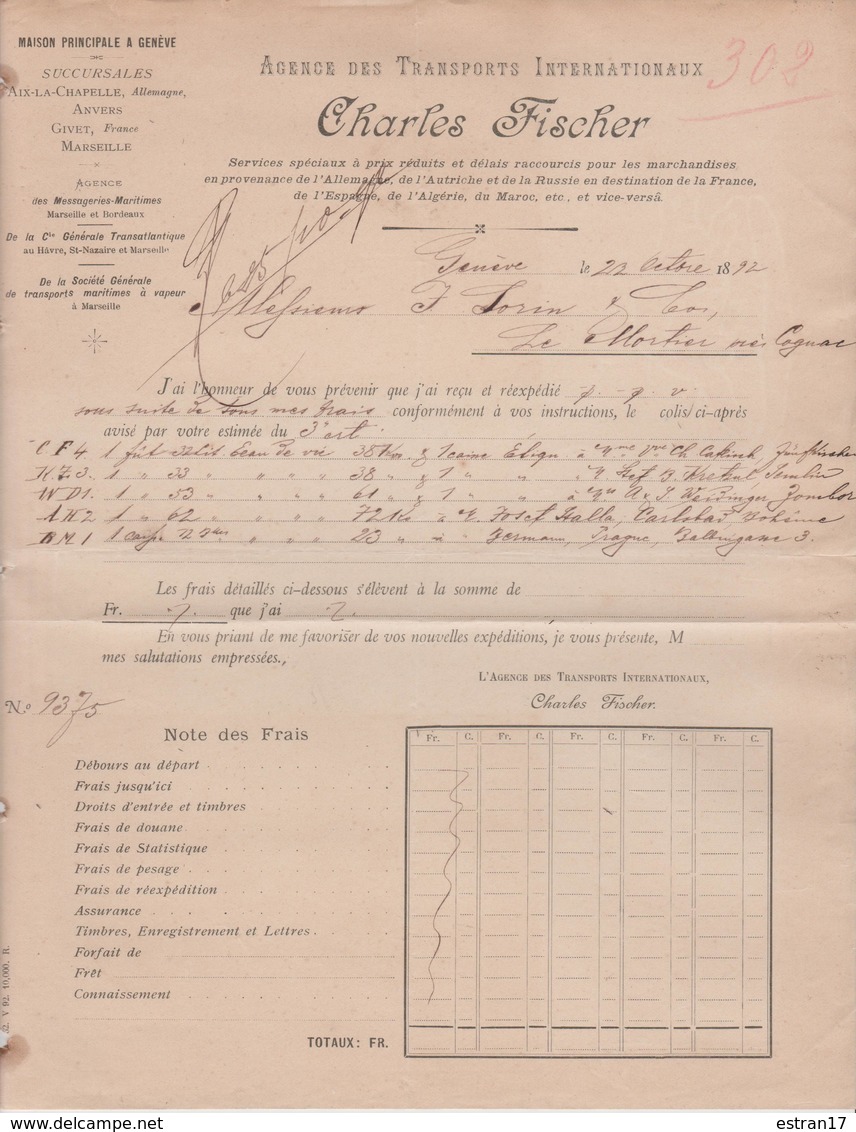 MAISON PRINCIPALE A GENÈVE
SUCCURSALES
AIX-LA-CHAPELLE, Allemagne,
ANVERS
GIVET, France
MARSEILLE
AGENCE
des Messageries-Maritimes
Marseille et Bordeaux
De la Cie Générale Transatlantique
au Hâvre, St-Nazaire et Marseille
De la Société Générale
de transports maritimes à vapeur
à Marseille
AGENCE DES TRANSPORTS INTERNATIONAUX
302
Charles Fischer
Services spéciaux à prix réduits et délais raccourcis pour les marchandises
en provenance de l'Allemagne, de l'Autriche et de la Russie en destination de la France,
de l'Espagne, de l'Algérie, du Maroc, etc., et vice-versâ.
Genève le 22 Octbre 1892
Messieurs F. Lorin & Cos,
Le Mortier près Cognac
J'ai l'honneur de vous prévenir que j'ai reçu et réexpédié p. g. v.
sous suite de tous mes frais conformément à vos instructions, le colis/ci-après
avisé par votre estimée du 3 crt
C F 4 1 fût Eau de vie 38 Kos & 1 caisse à Mme Vve Ch.
3. 1 " 33 " " " 38 " & 1 " " à
W D 1. 1 " 53 " " " 61 " & 1 " " à Zombor
A H 2 1 " 62 " " " 72 Ks à Josef Halla, Carlsbad, Bohême
B M 1 1 " " " 23 " à Germann, Prague, 3.
Les frais détaillés ci-dessous s'élèvent à la somme de
Fr. que j'ai
En vous priant de me favoriser de vos nouvelles expéditions, je vous présente, M
mes salutations empressées.,
L'AGENCE DES TRANSPORTS INTERNATIONAUX,
Charles Fischer.
No 9375
Note des Frais
Fr. C. Fr. C. Fr. C. Fr. C. Fr. C.
Débours au départ
Frais jusqu'ici
Droits d'entrée et timbres
Frais de douane
Frais de Statistique
Frais de pesage
Frais de réexpédition
Assurance
Timbres, Enregistrement et Lettres
Forfait de
Frêt
Connaissement
TOTAUX: FR.
V 92. 10,000. R.
delcampe.net
estran17